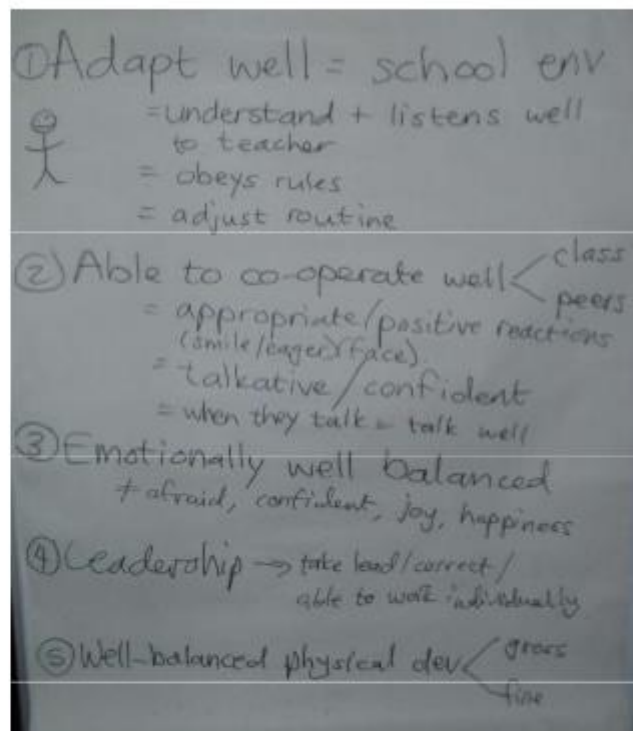 ① Adapt well = school env
= understand + listens well
to teacher
= obeys rules
= adjust routine
② Able to co-operate well < class
peers
= appropriate/positive reactions
(smile/eager)(face)
= talkative/confident
= when they talk = talk well
③ Emotionally well balanced
≠ afraid, confident, joy, happiness
④ Leadership → take lead/correct/
able to work individually
⑤ Well-balanced physical dev < gross
fine